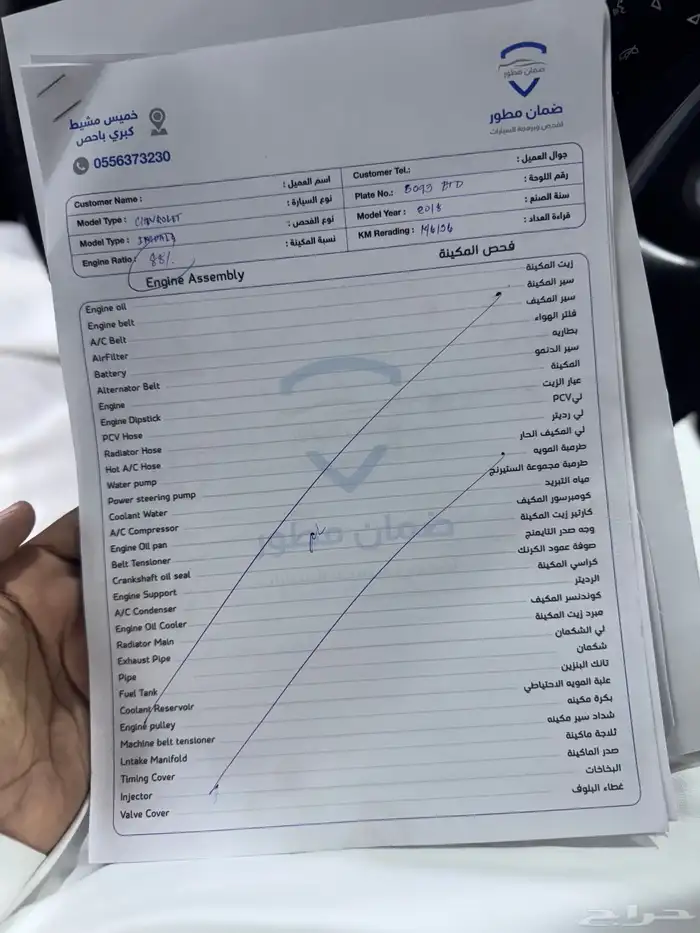 خميس مشيط
كبري باحص
0556373230
ضمان مطور
ضمان مطور
لفحص وبرمجة السيارات
Customer Name : اسم العميل :
Customer Tel.: جوال العميل :
Model Type : CHEVROLET نوع السيارة :
Plate No.: رقم اللوحة :
Model Type : نوع الفحص :
Model Year : 2018 سنة الصنع :
Engine Ratio: 88% نسبة المكينة :
KM Rerading : قراءة العداد :
Engine Assembly فحص المكينة
Engine oil زيت المكينة
Engine belt سير المكينة
A/C Belt سير المكيف
AirFilter فلتر الهواء
Battery بطاريه
Alternator Belt سير الدنمو
Engine المكينة
Engine Dipstick عيار الزيت
PCV Hose لي PCV
Radiator Hose لي رديتر
Hot A/C Hose لي المكيف الحار
Water pump طرمبة المويه
Power steering pump طرمبة مجموعة الستيرنج
Coolant Water مياه التبريد
A/C Compressor كومبرسور المكيف
Engine Oil pan كارتير زيت المكينة
Belt Tensioner وجه صدر التايمنج
Crankshaft oil seal صوفة عمود الكرنك
Engine Support كراسي المكينة
A/C Condenser الرديتر
Engine Oil Cooler كوندنسر المكيف
Radiator Main مبرد زيت المكينة
Exhaust Pipe لي الشكمان
Pipe شكمان
Fuel Tank تانك البنزين
Coolant Reservoir علبة المويه الاحتياطي
Engine pulley بكرة مكينه
Machine belt tensioner شداد سير مكينه
Lntake Manifold ثلاجة ماكينة
Timing Cover صدر الماكينة
Injector البخاخات
Valve Cover غطاء البلوف
ضمان مطور
حراج